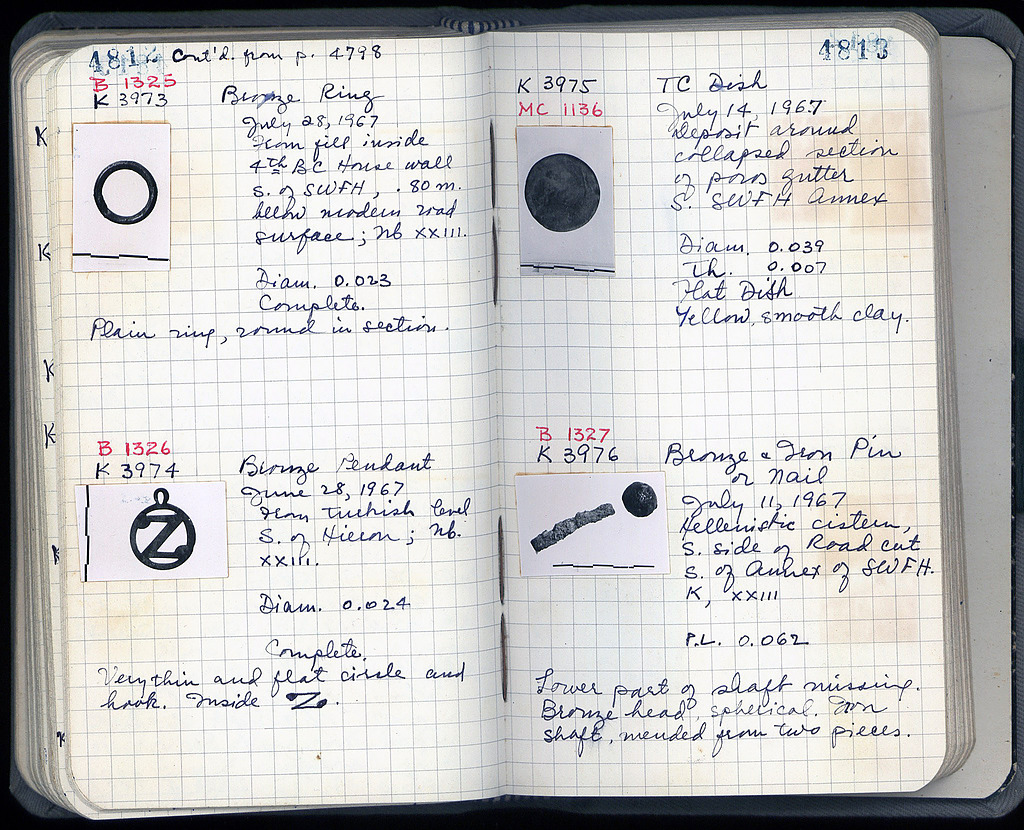 4812 Cont'd. from p. 4798
B 1325
K 3973 Bronze Ring
July 28, 1967
From fill inside
4th BC House wall
S. of SWFH, .80 m.
below modern road
surface; Nb XXIII.
Diam. 0.023
Complete.
Plain ring, round in section.
B 1326
K 3974 Bronze Pendant
June 28, 1967
From Turkish level
S. of Hieron; Nb.
XXIII.
Diam. 0.024
Complete.
Very thin and flat circle and
hook. Inside Z.
K
K
K
K
K
K
Z
4813
K 3975 TC Dish
MC 1136 July 14, 1967
deposit around
collapsed section
of poros gutter
S. SWFH Annex
Diam. 0.039
Th. 0.007
Flat Dish
Yellow, smooth clay.
B 1327
K 3976 Bronze & Iron Pin
or Nail
July 11, 1967
Hellenistic cistern,
S. side of Road cut
S. of Annex of SWFH.
K, XXIII
P.L. 0.062
Lower part of shaft missing.
Bronze head, spherical. Iron
shaft, mended from two pieces.